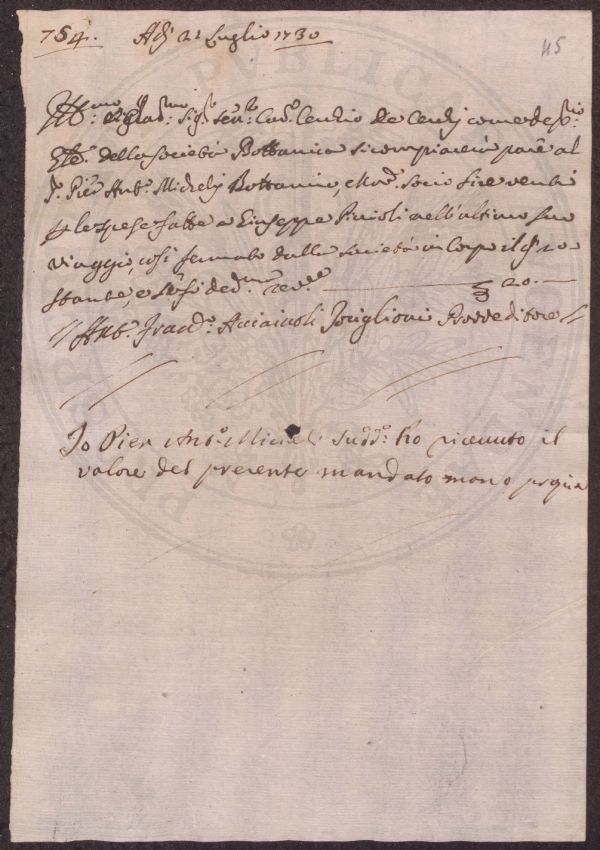 754. Adj 21 Luglio 1730
45
Ill:mo e Clar:mo Sig:e Sen:re Cav:e Cerchio de Cerchj come dep:rio
G:le della Società Bottanica si compiacerà pagare al
S. Pier Ant:o Michelj Bottanico, e socio lire venti
p le spese fatte a Giuseppe Piccioli nell'ultimo suo
viaggio, così fermato dalla Società in Corpo il gno
stante, e 20.—
// Ant:o Franc:o Acciaiuoli Toriglioni Provveditore //
Io Pier Ant:o Micheli sudd:o ho riceuuto il
valore del presente mandato mano propria
PVBLICA